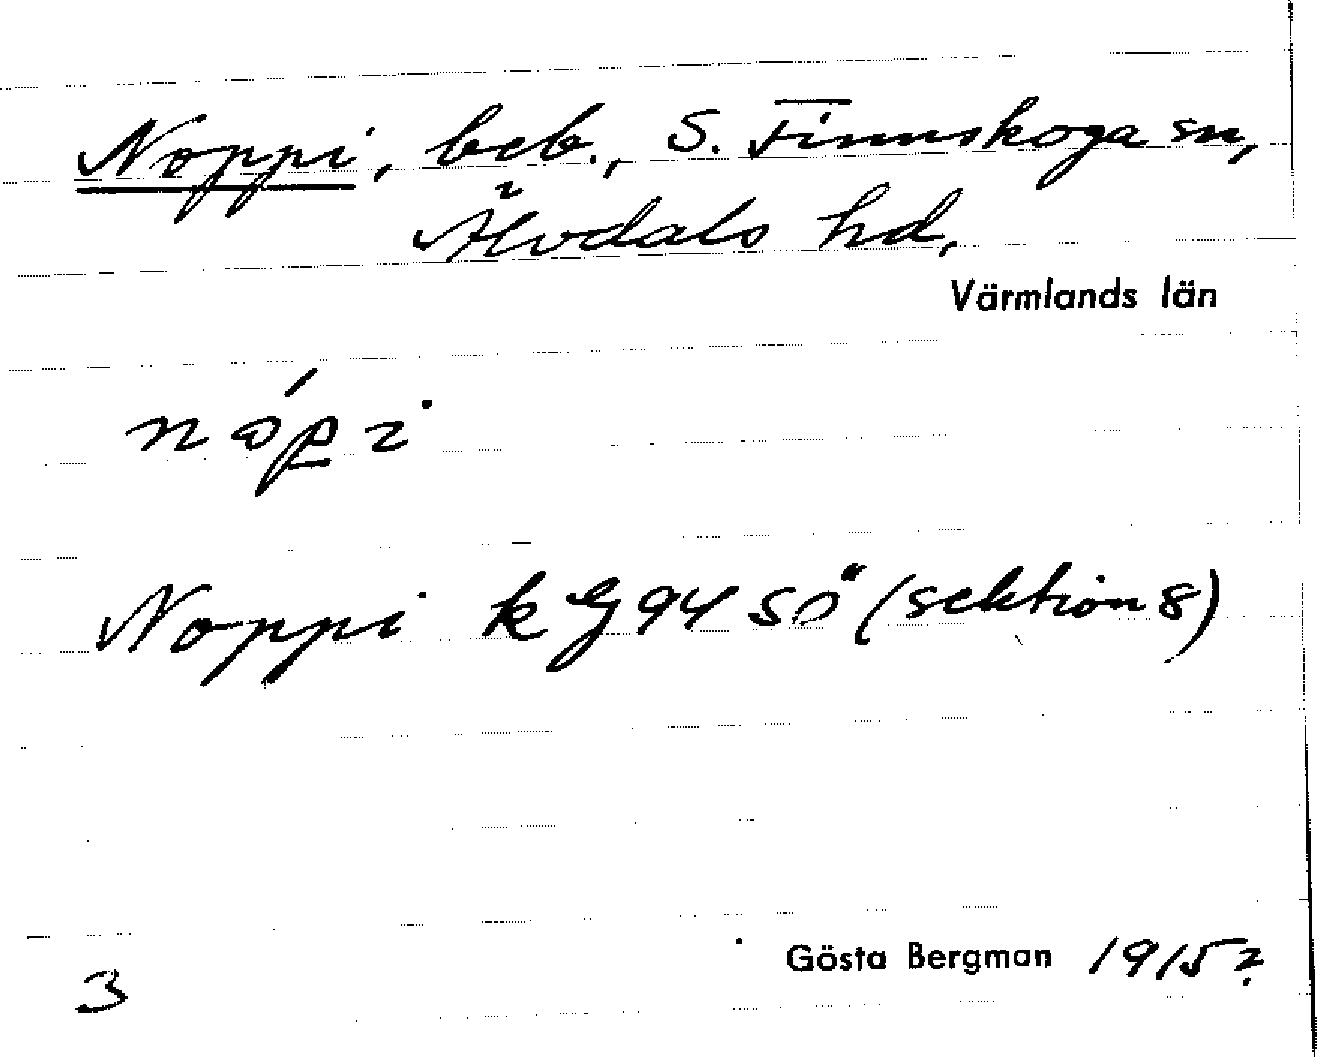 Noppi, beb., S. Finnskoga sn,
Älvdals hd,
Värmlands län
nópi
Noppi k G 94 SÖ (sektion 8)
Gösta Bergman 1915?
3